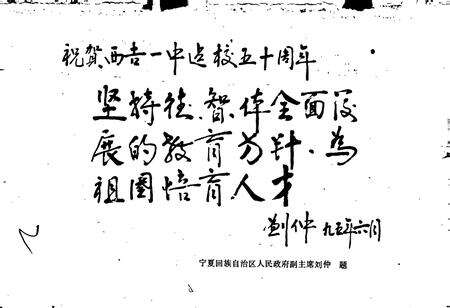 祝贺西吉一中建校五十周年
坚持德、智、体全面发
展的教育方针、为
祖国培育人才
刘仲 九五年六月
宁夏回族自治区人民政府副主席刘仲 题